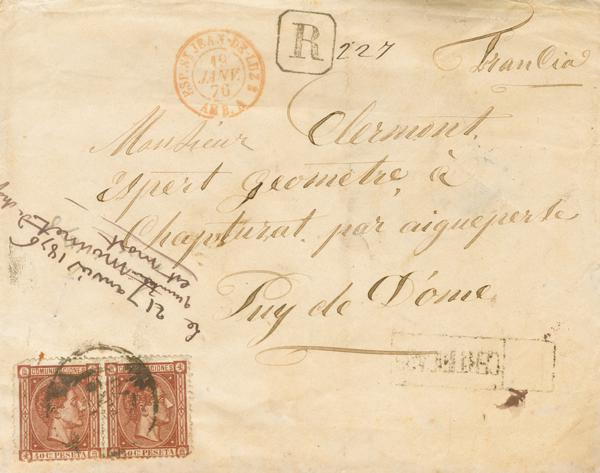 ESP. ST JEAN-DE-LUZ
19
JANV.
76
AMB. A
R
227
Francia
Monsieur Clermont,
Expert geomètre, à
Chapturat par aigueperse
Puy de Dôme
le 217 1876
est mort
COMUNICACIONES
40 Cs PESETA
COMUNICACIONES
40 Cs PESETA
CERTIFICADO